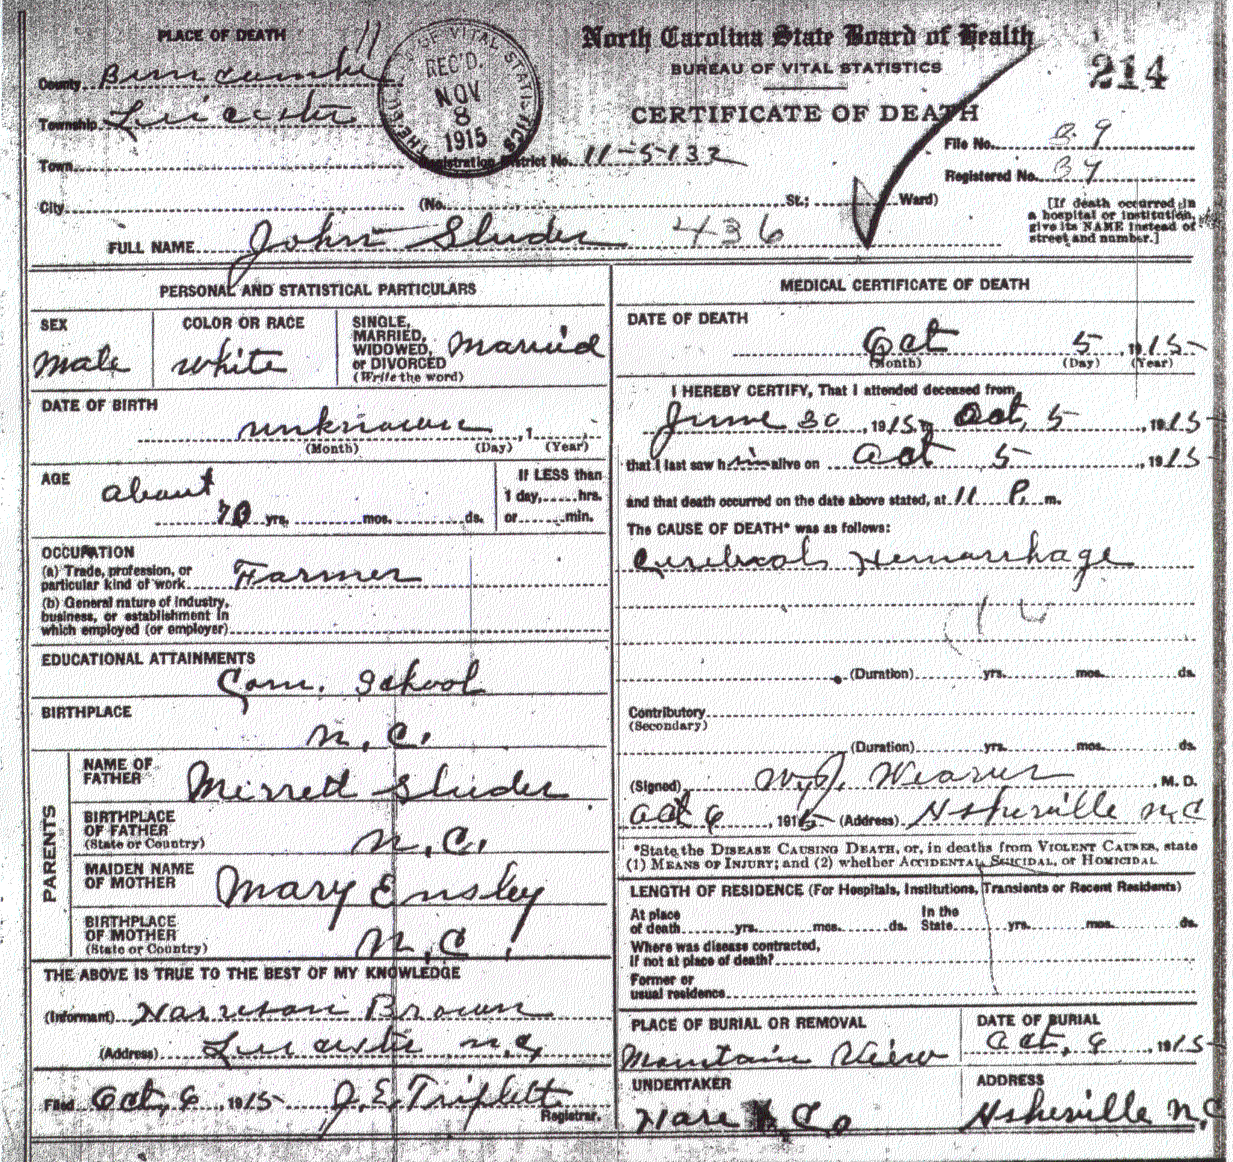 PLACE OF DEATH 11
County Buncombe
Township Leicester
Town
City (No. St.; Ward)
THE BU OF VITAL STATISTICS
REC'D.
NOV
8
1915
North Carolina State Board of Health
BUREAU OF VITAL STATISTICS
CERTIFICATE OF DEATH
214
Registration District No. 11-5132
File No. 29
Registered No. 37
[If death occurred in
a hospital or institution,
give its NAME instead of
street and number.]
FULL NAME John Sluder 436
PERSONAL AND STATISTICAL PARTICULARS
SEX
Male
COLOR OR RACE
White
SINGLE,
MARRIED,
WIDOWED,
or DIVORCED
(Write the word)
Married
DATE OF BIRTH
unknown , 1
(Month) (Day) (Year)
AGE
about
70 yrs. mos. ds.
If LESS than
1 day, hrs.
or min.
OCCUPATION
(a) Trade, profession, or
particular kind of work Farmer
(b) General nature of industry,
business, or establishment in
which employed (or employer)
EDUCATIONAL ATTAINMENTS
Com. School
BIRTHPLACE
N.C.
PARENTS
NAME OF
FATHER
Mirrett Sluder
BIRTHPLACE
OF FATHER
(State or Country)
N.C.
MAIDEN NAME
OF MOTHER
Mary Ensley
BIRTHPLACE
OF MOTHER
(State or Country)
N.C.
THE ABOVE IS TRUE TO THE BEST OF MY KNOWLEDGE
(Informant) Harrison Brown
(Address) Leicester N.C.
Filed Oct, 6, 1915 J.E. Triplett
Registrar.
MEDICAL CERTIFICATE OF DEATH
DATE OF DEATH
Oct 5 1915
(Month) (Day) (Year)
I HEREBY CERTIFY, That I attended deceased from
June 30, 1915, Oct, 5, 1915
that I last saw him alive on Oct 5, 1915
and that death occurred on the date above stated, at 11 P. m.
The CAUSE OF DEATH* was as follows:
Cerebral Hemorrhage
(Duration) yrs. mos. ds.
Contributory
(Secondary)
(Duration) yrs. mos. ds.
(Signed) W.J. Weaver, M. D.
Oct 6, 1915 (Address) Asheville N.C
*State the DISEASE CAUSING DEATH, or, in deaths from VIOLENT CAUSES, state
(1) MEANS OF INJURY; and (2) whether ACCIDENTAL, SUICIDAL, or HOMICIDAL
LENGTH OF RESIDENCE (For Hospitals, Institutions, Transients or Recent Residents)
At place
of death yrs. mos. ds.
In the
State yrs. mos. ds.
Where was disease contracted,
If not at place of death?
Former or
usual residence
PLACE OF BURIAL OR REMOVAL
Mountain View
DATE OF BURIAL
Oct, 6, 1915
UNDERTAKER
Hare & Co
ADDRESS
Asheville N.C